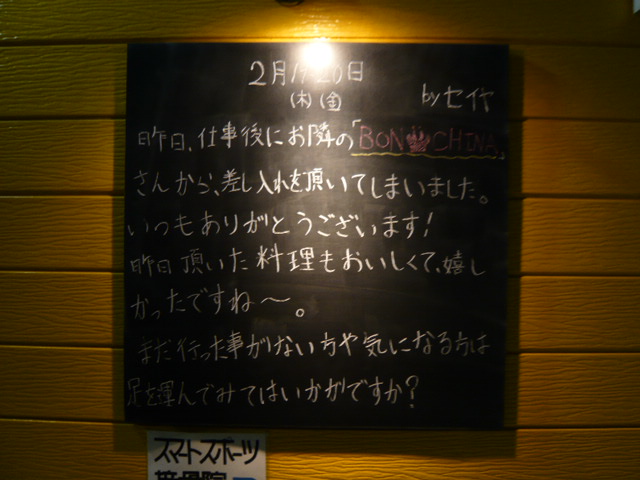 2月19,20日
(木)(金)
byセイヤ
昨日、仕事後にお隣の「BON CHINA」
さんから、差し入れを頂いてしまいました。
いつもありがとうございます!
昨日頂いた料理もおいしくて、嬉し
かったですね〜。
まだ行った事がない方や気になる方は
足を運んでみてはいかがですか?
スマートスポーツ